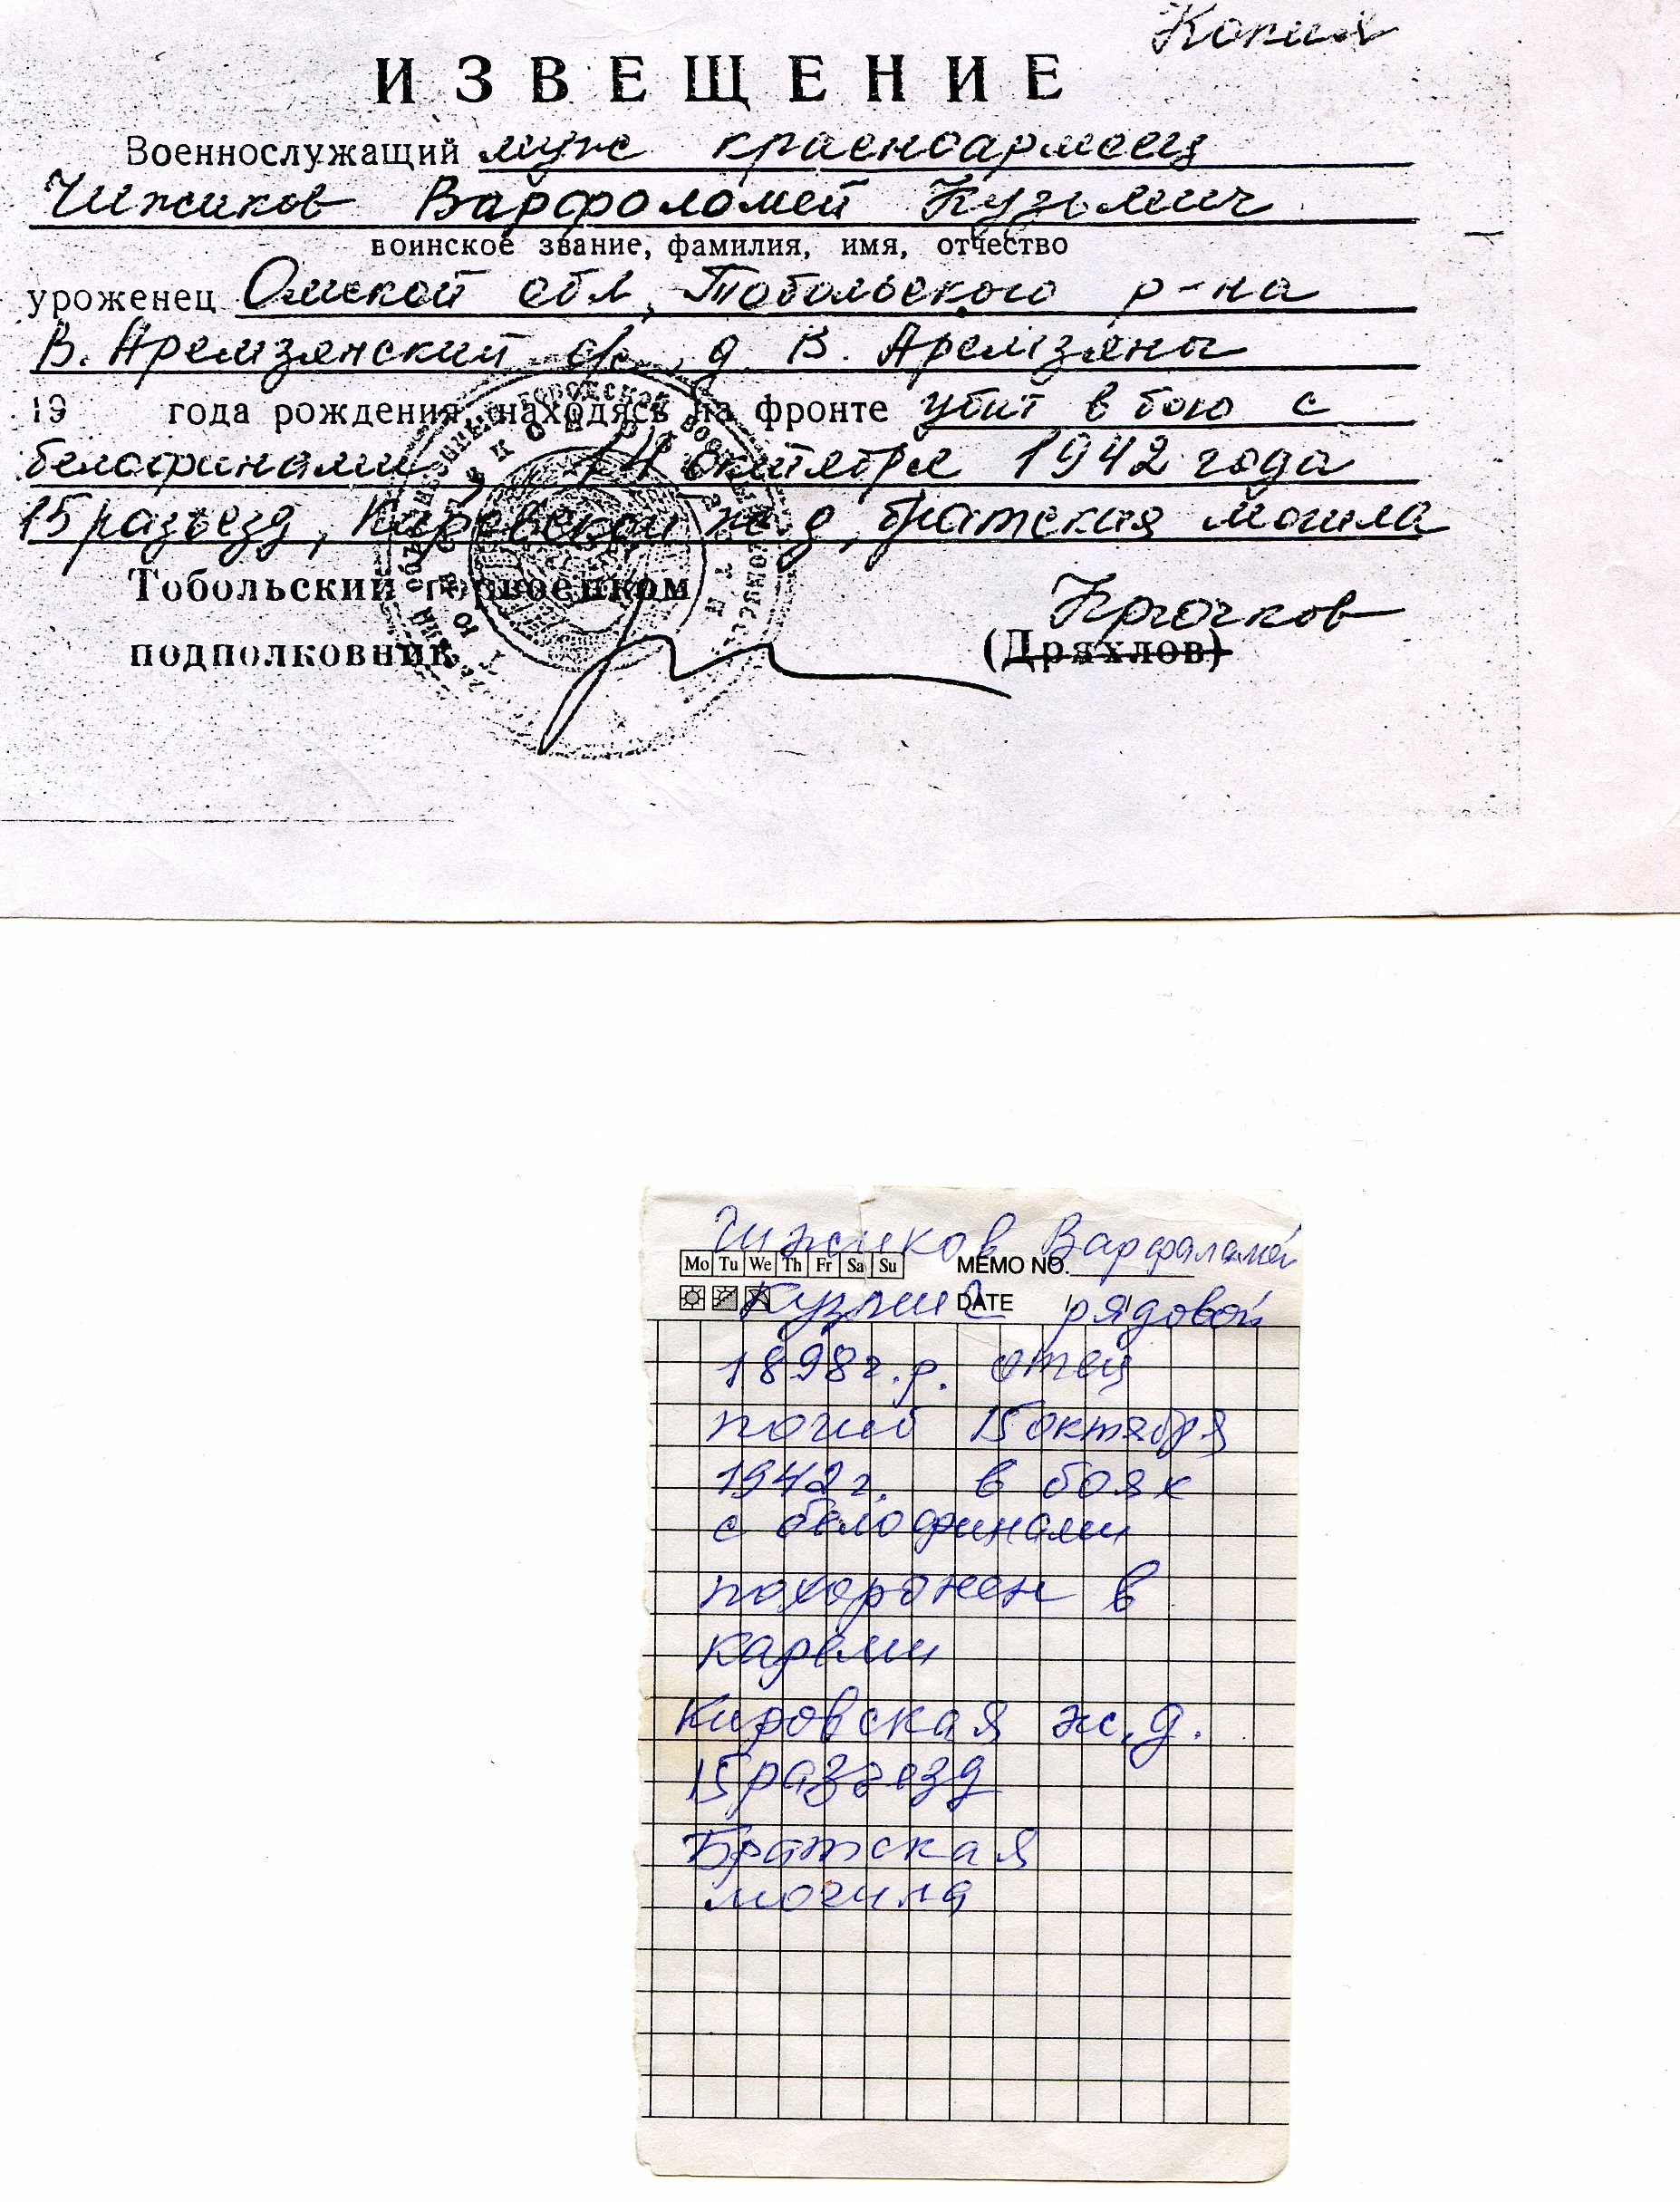 Копия
ИЗВЕЩЕНИЕ
Военнослужащий муж красноармеец
Чижиков Варфоломей Кузьмич
воинское звание, фамилия, имя, отчество
уроженец Омской обл, Тобольского р-на
В. Аремзянский с/с, д В. Аремзяны
19 года рождения, находясь на фронте убит в бою с
белофинами 14 октября 1942 года
15 разъезд, Кировской ж д, братская могила
Тобольский горвоенком
Крючков
подполковник (Дряхлов)
Чижиков Варфаламей
Mo Tu We Th Fr Sa Su MEMO NO.
Кузмич DATE / / рядовой
1898 г.р. отец
погиб 15 октября
1942 г. в боях
с белофинами
похоронен в
карели
Кировская ж.д.
15 разъезд
Братская
могила